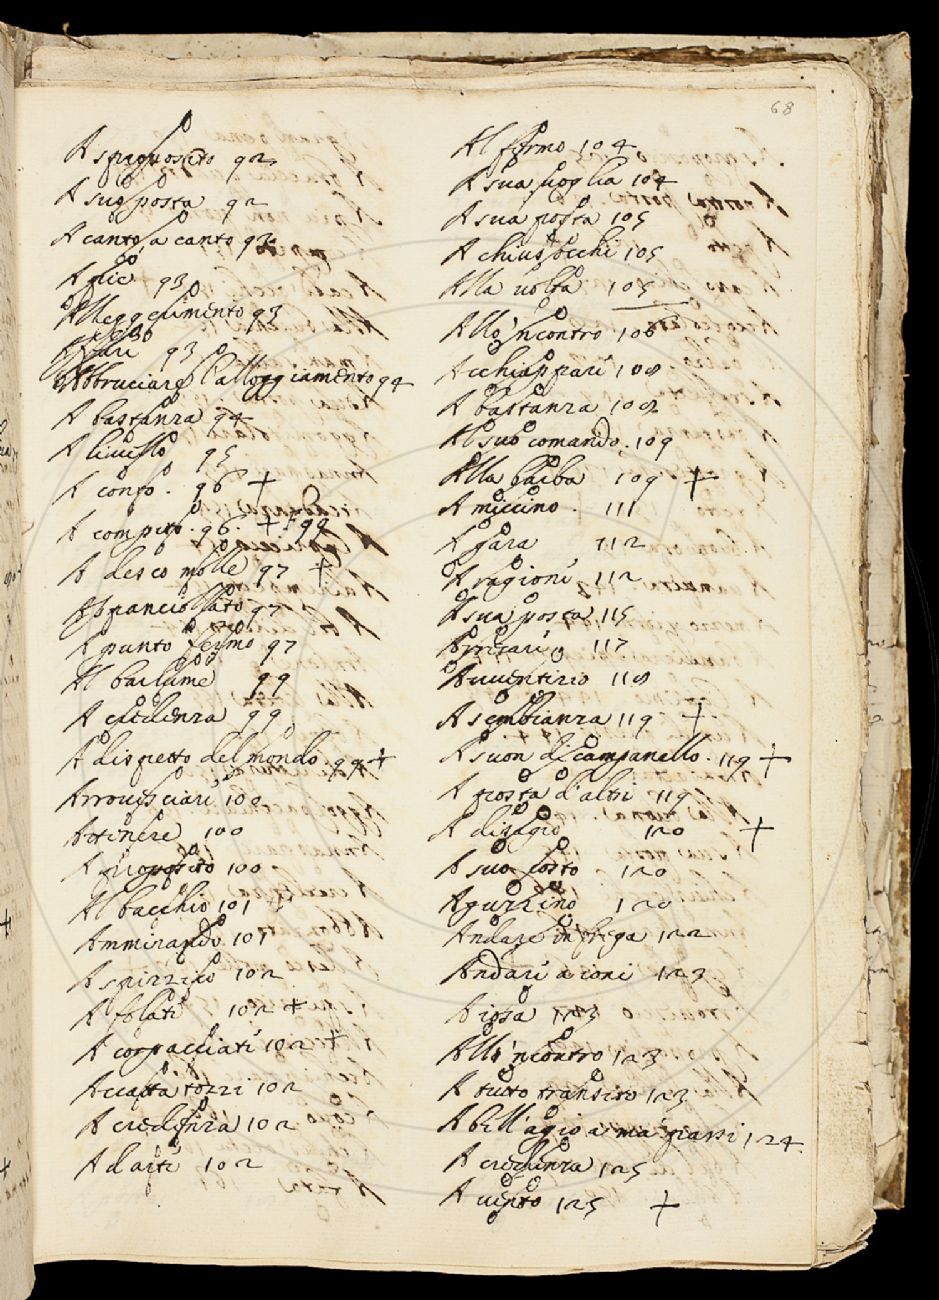 68
A sproposito 92
A suo posta 92
A canto a canto 93
A pie 93
Alleggerimento 93
93
Abbruciare l'alloggiamento 94
A bastanza 94
A livello 95
A conto. 96 +
A compito. 96. + + 99
A desco molle 97 +
Abracciollato 97
A punto fermo 97
Al barlume 99
A credenza 99
A dispetto del mondo. 99 +
Arrovesciari 100
Attenere 100
A proposito 100
Al bacchio 101
Ammirando 101
A spizzico 102
A folati 102 +
A corpacciati 102 +
Accatta tozzi 102
A credenza 102
A l'arti 102
Al fermo 104
A sua voglia 104
A sua posta 105
A chius'occhi 105
Alla volta 105
All'incontro 106
Acchiappari 108
A bastanza 108
Al suo comando. 109
Alla barba 109 +
A miccino. 111
A gara 112
A ragioni 112
A sua posta 115
Arrivari 117
Avventizio 118
A sembianza 119 +
A suon di campanello. 119 +
A posta d'altri 119
A disagio 120 +
A suo costo 120
Aguzzino 120
Andare in frega 122
Andari a ioni 123
A iosa 123
All'incontro 123
A tutto transito 123
A bell'agio a ma' passi 124
A credenza 125
A vento 125 +